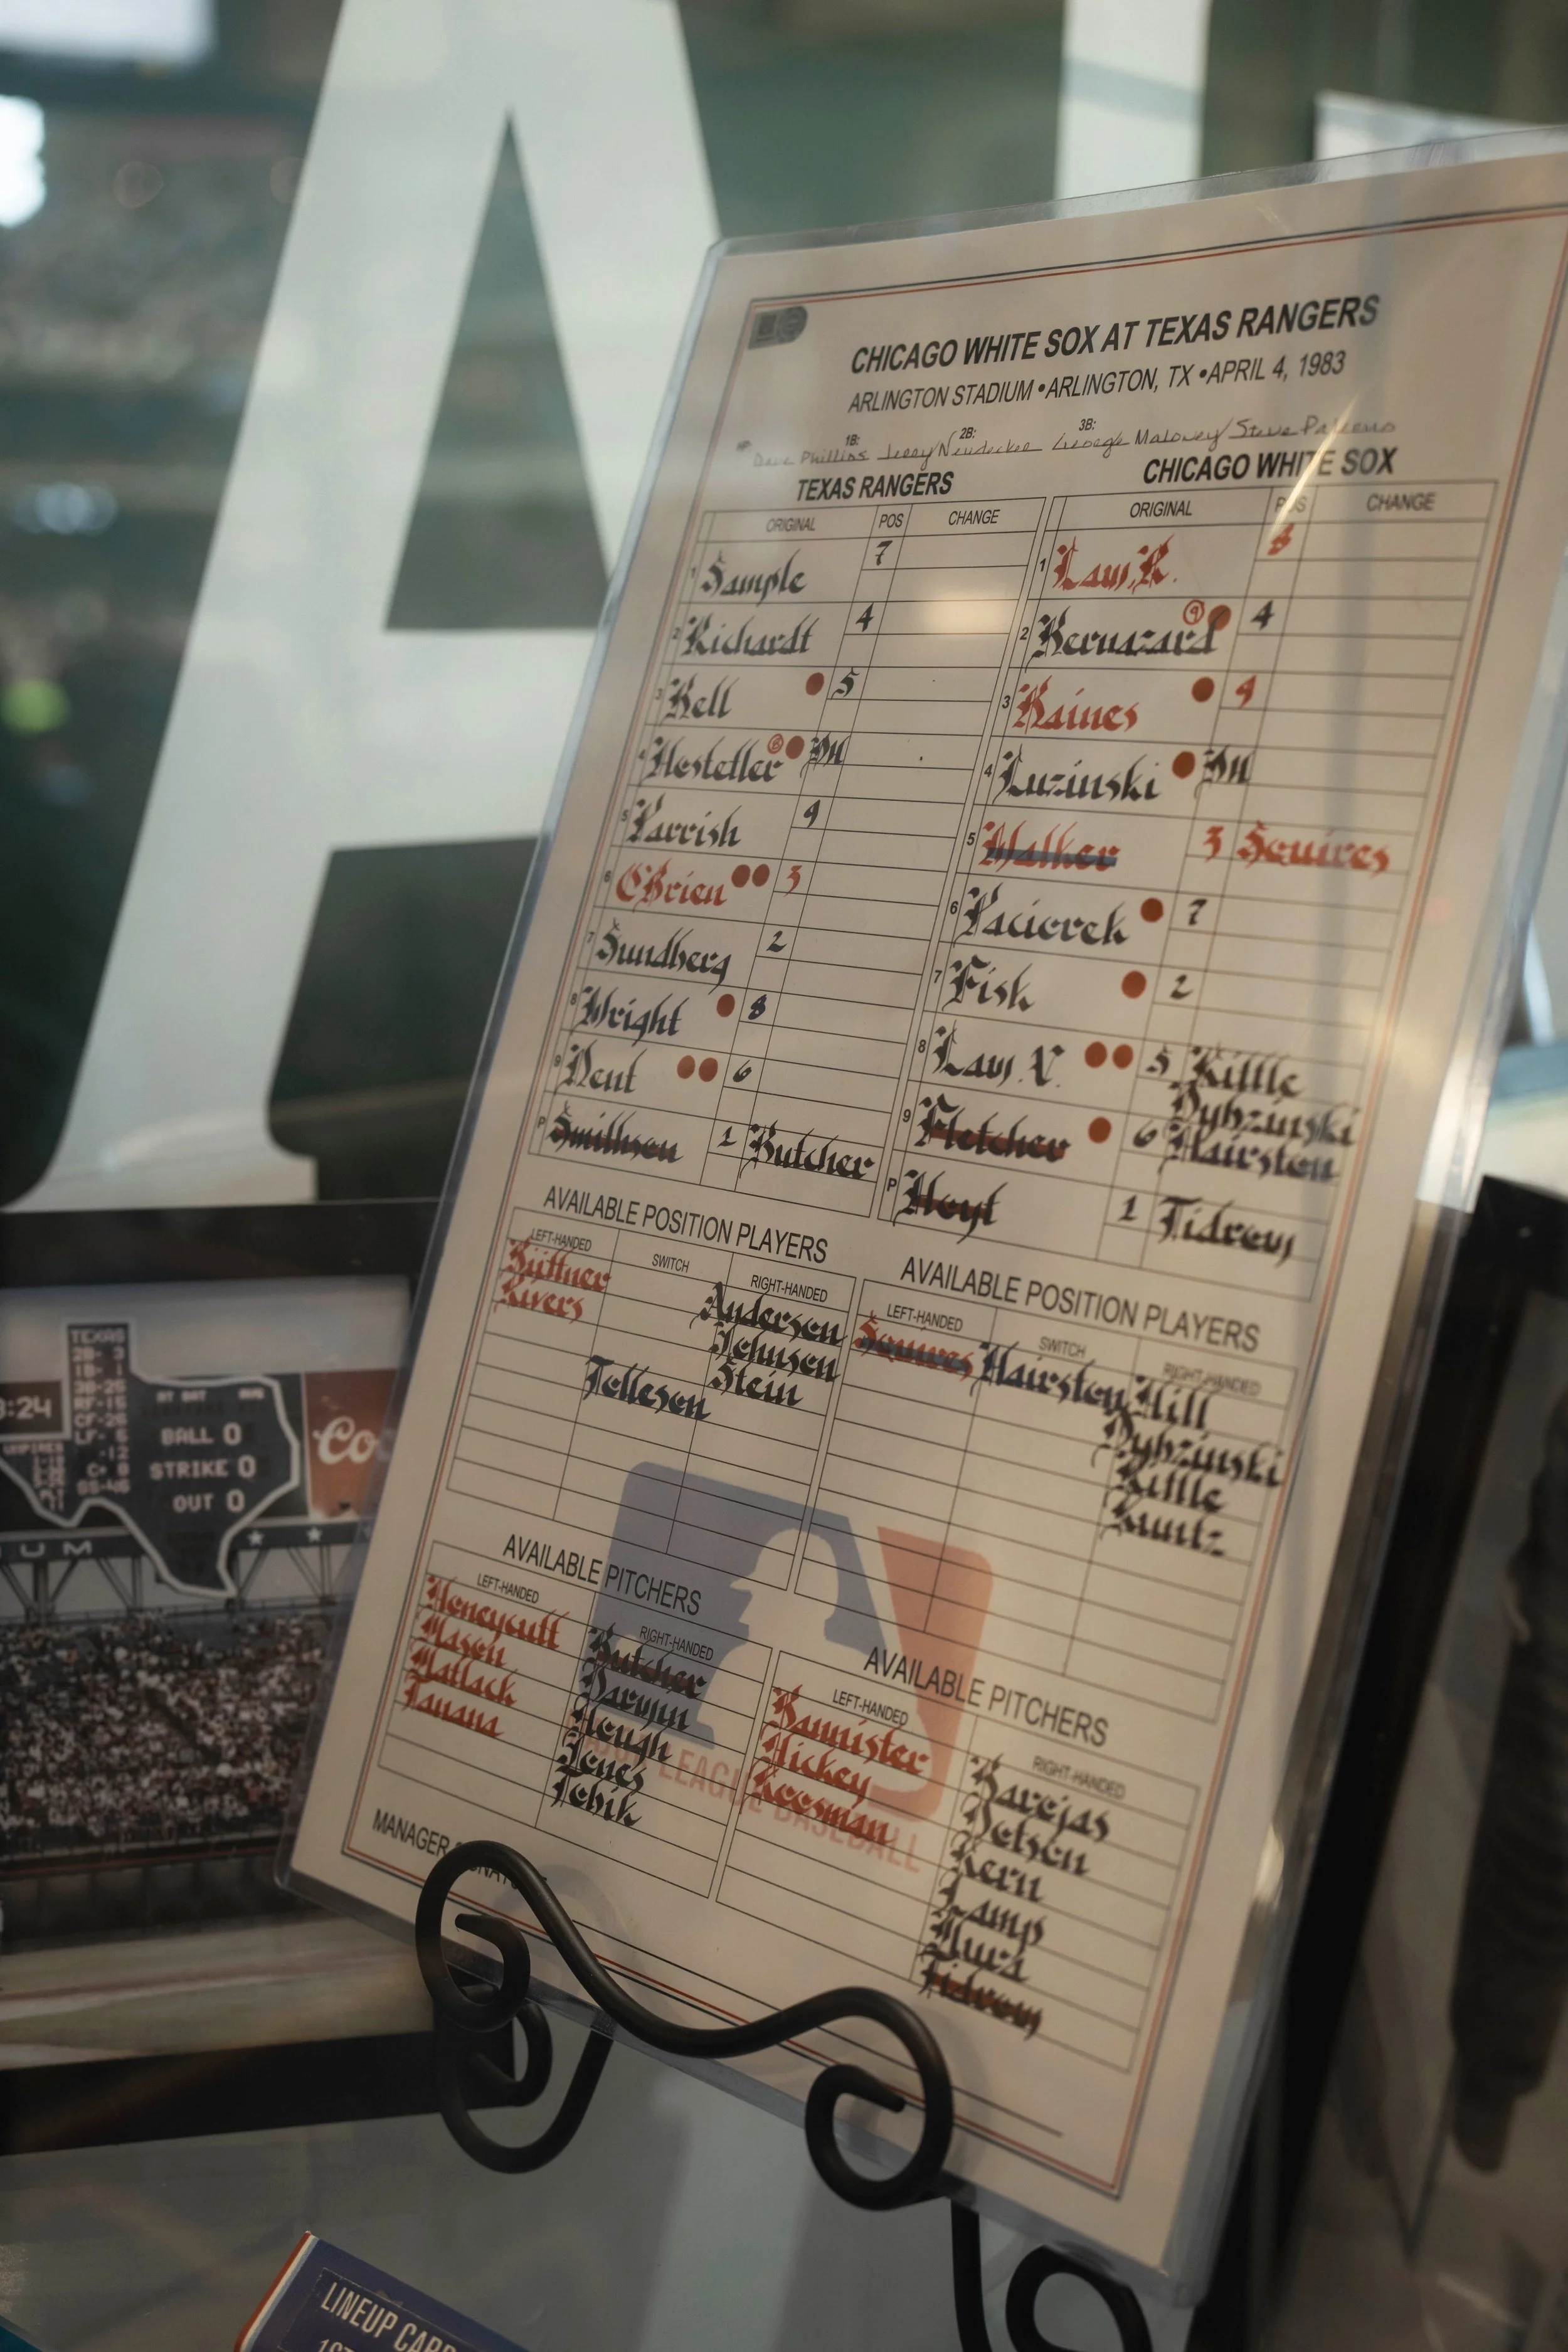 CHICAGO WHITE SOX AT TEXAS RANGERS
ARLINGTON STADIUM • ARLINGTON, TX • APRIL 4, 1983
HP: 1B: 2B: 3B:
Dave Phillips Jerry Neudecker George Maloney/Steve Palermo
TEXAS RANGERS
ORIGINAL POS CHANGE
1 Sample 7
2 Richardt 4
3 Bell 5
4 Hostetler 8 DH
5 Parrish 9
6 O'Brien 3
7 Sundberg 2
8 Wright 8
9 Dent 6
P Smithson 1 Butcher
AVAILABLE POSITION PLAYERS
LEFT-HANDED SWITCH RIGHT-HANDED
Biittner Anderson
Rivers Johnson
Stein
Tolleson
AVAILABLE PITCHERS
LEFT-HANDED RIGHT-HANDED
Honeycutt Butcher
Mason Darwin
Matlack Hough
Tanana Jones
Tobik
MANAGER
CHICAGO WHITE SOX
ORIGINAL POS CHANGE
1 Law, R. 8
2 Bernazard 9 4
3 Baines 9
4 Luzinski DH
5 Walker 3 Squires
6 Paciorek 7
7 Fisk 2
8 Law, V. 5 Kittle
Dybzinski
9 Fletcher 6 Hairston
P Hoyt 1 Tidrow
AVAILABLE POSITION PLAYERS
LEFT-HANDED SWITCH RIGHT-HANDED
Squires Hairston Hill
Dybzinski
Kittle
Kuntz
AVAILABLE PITCHERS
LEFT-HANDED RIGHT-HANDED
Bannister Barojas
Hickey Dotson
Koosman Kern
Lamp
Mura
Tidrow
LEAGUE BASEBALL
TEXAS
:24
AT BAT
BALL 0
STRIKE 0
OUT 0
UMPIRES
RF-15
CF-26
LF- 5
-12
SS-46
Co
UM
LINEUP CARD
A